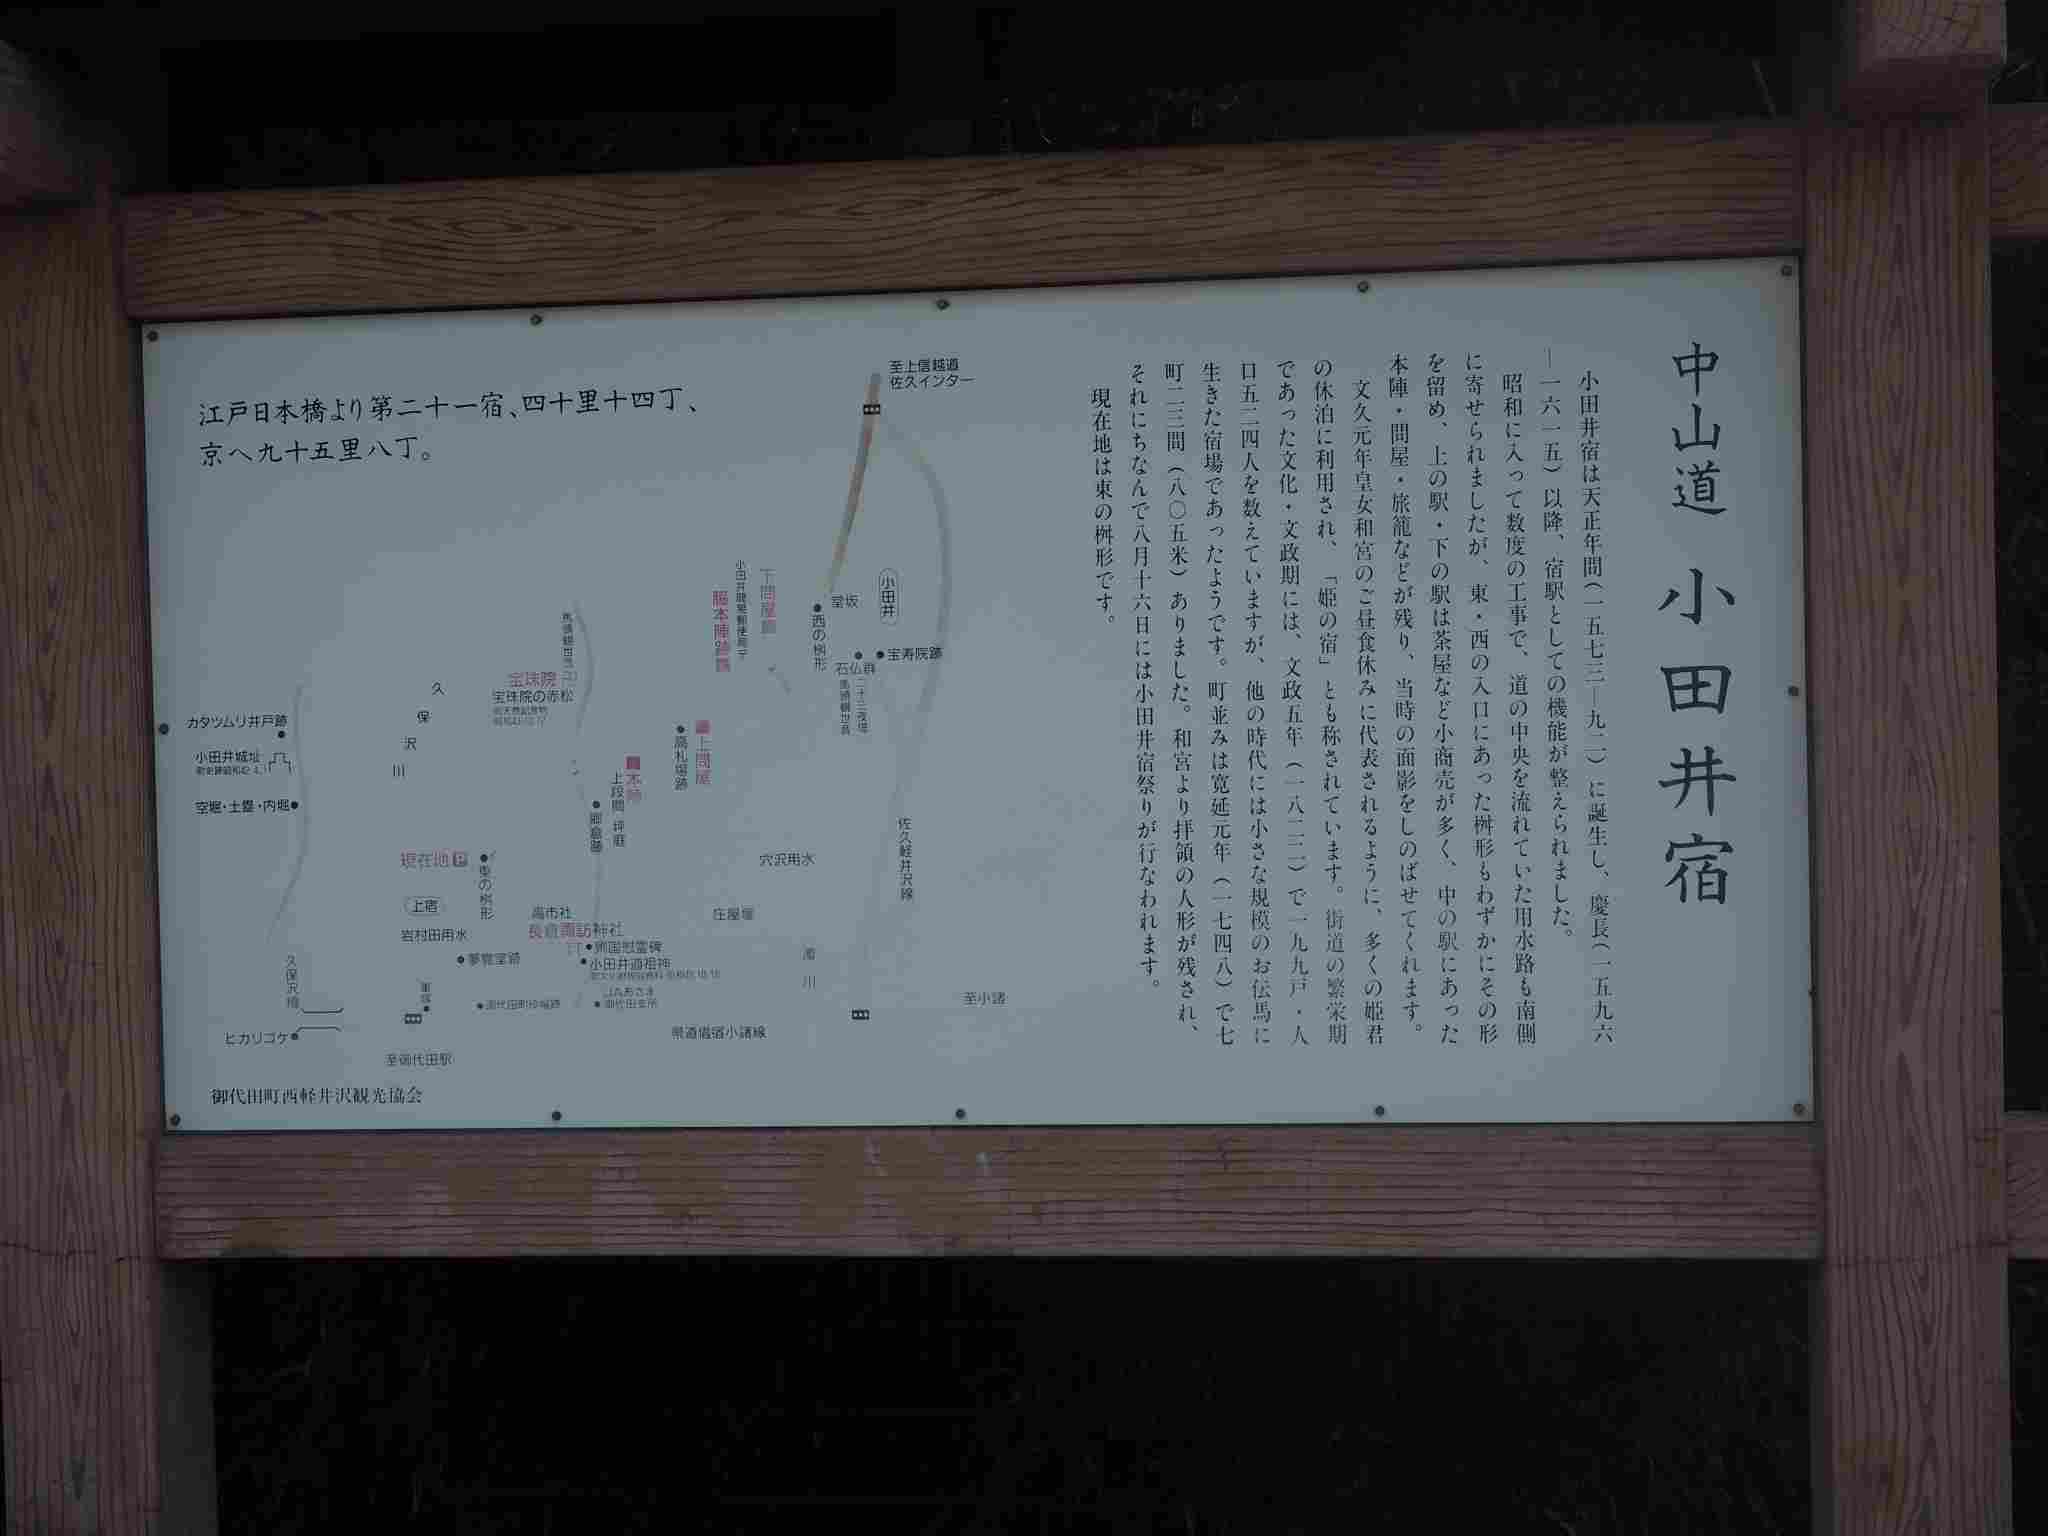 中山道 小田井宿
小田井宿は天正年間(一五七三―九二)に誕生し、慶長(一五九六
―一六一五)以降、宿駅としての機能が整えられました。
昭和に入って数度の工事で、道の中央を流れていた用水路も南側
に寄せられましたが、東・西の入口にあった桝形もわずかにその形
を留め、上の駅・下の駅は茶屋など小商売が多く、中の駅にあった
本陣・問屋・旅籠などが残り、当時の面影をしのばせてくれます。
文久元年皇女和宮のご昼食休みに代表されるように、多くの姫君
の休泊に利用され、「姫の宿」とも称されています。街道の繁栄期
であった文化・文政期には、文政五年(一八二二)で一九九戸・人
口五二四人を数えていますが、他の時代には小さな規模のお伝馬に
生きた宿場であったようです。町並みは寛延元年(一七四八)で七
町二三間(八〇五米)ありました。和宮より拝領の人形が残され、
それにちなんで八月十六日には小田井宿祭りが行なわれます。
現在地は東の桝形です。
江戸日本橋より第二十一宿、四十里十四丁、
京へ九十五里八丁。
至上信越道
佐久インター
小田井
堂坂
西の桝形
宝寿院跡
石仏群
二十三夜塔
馬頭観世音
下問屋跡
脇本陣跡
宝珠院
宝珠院の赤松
久保沢川
カタツムリ井戸跡
小田井城址
空堀・土塁・内堀
上問屋
高札場跡
本陣
上段間 坪庭
郷倉跡
現在地 P
東の桝形
上宿
岩村田用水
高市社
長倉諏訪神社
小田井道祖神
JAあさま
御代田支所
穴沢用水
庄屋塚
佐久軽井沢線
濁川
至小諸
県道借宿小諸線
久保沢橋
ヒカリゴケ
至御代田駅
御代田町西軽井沢観光協会